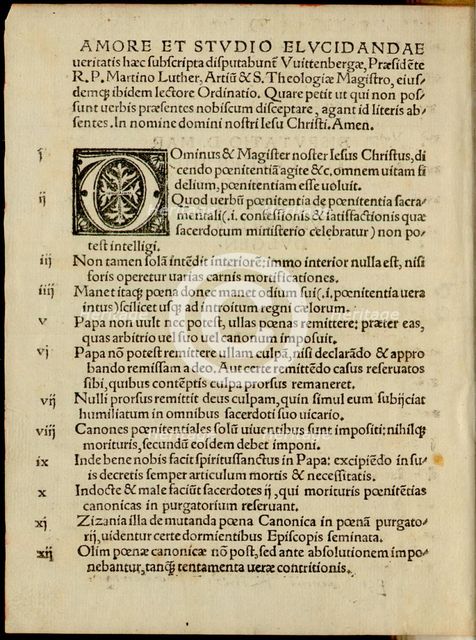 AMORE ET STVDIO ELVCIDANDAE
ueritatis hæc subscripta disputabunt̃ Vuittenbergæ, Præsidẽte
R. P. Martino Luther, Artiũ & S. Theologiæ Magistro, eius/
demq́; ibidem lectore Ordinatio. Quare petit ut qui non pos/
sunt uerbis præsentes nobiscum disceptare, agant id literis ab/
sentes. In nomine domini nostri Iesu Christi. Amen.
j Dominus & Magister noster Iesus Christus, di
cendo pœnitentiã agite &c, omnem uitam fi
delium, pœnitentiam esse uoluit.
ij Quod uerbũ pœnitentia de pœnitentia sacra/
mentali (.i. confessionis & satisfactionis quæ
sacerdotum ministerio celebratur) non po/
test intelligi.
iij Non tamen solã intẽdit interiorẽ: immo interior nulla est, nisi
foris operetur uarias carnis mortificationes.
iiij Manet itaq́; pœna donec manet odium sui (.i. pœnitentia uera
intus) scilicet usq́; ad introitum regni cælorum.
v Papa non uult nec potest, ullas pœnas remittere: præter eas,
quas arbitrio uel suo uel canonum imposuit.
vj Papa nõ potest remittere ullam culpã, nisi declarãdo & appro
bando remissam a deo. Aut certe remittẽdo casus reseruatos
sibi, quibus contẽptis culpa prorsus remaneret.
vij Nulli prorsus remittit deus culpam, quin simul eum subijciat
humiliatum in omnibus sacerdoti suo uicario.
viij Canones pœnitentiales solũ uiuentibus sunt impositi: nihilq́;
morituris, secundũ eosdem debet imponi.
ix Inde bene nobis facit spiritussanctus in Papa: excipiẽdo in su/
is decretis semper articulum mortis & necessitatis.
x Indocte & male faciũt sacerdotes ij, qui morituris pœnitẽtias
canonicas in purgatorium reseruant.
xj Zizania illa de mutanda pœna Canonica in pœnã purgato/
rij, uidentur certe dormientibus Episcopis seminata.
xij Olim pœnæ canonicæ nõ post, sed ante absolutionem impo/
nebantur, tanq́; tentamenta ueræ contritionis.
heritage